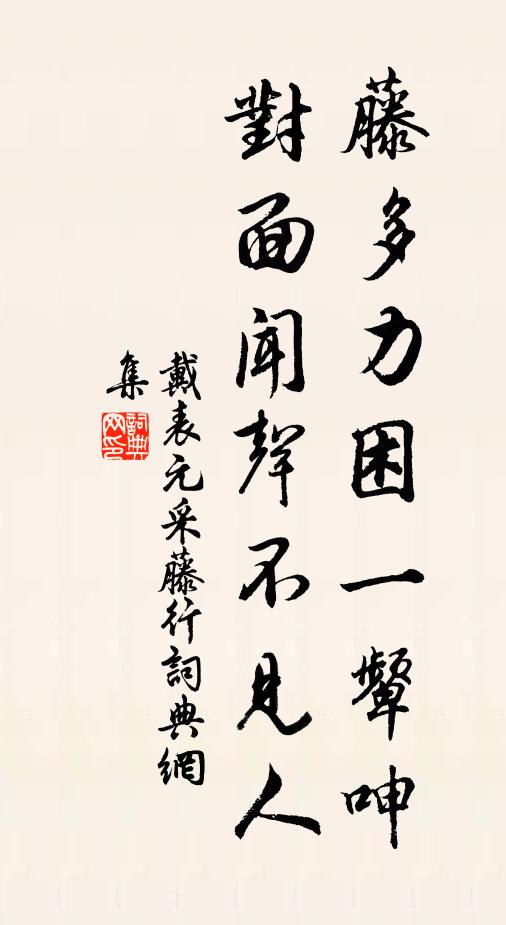 藤多力困一顰呻
對面聞聲不見人
戴表元采藤行詞典網
集
詞典
网印